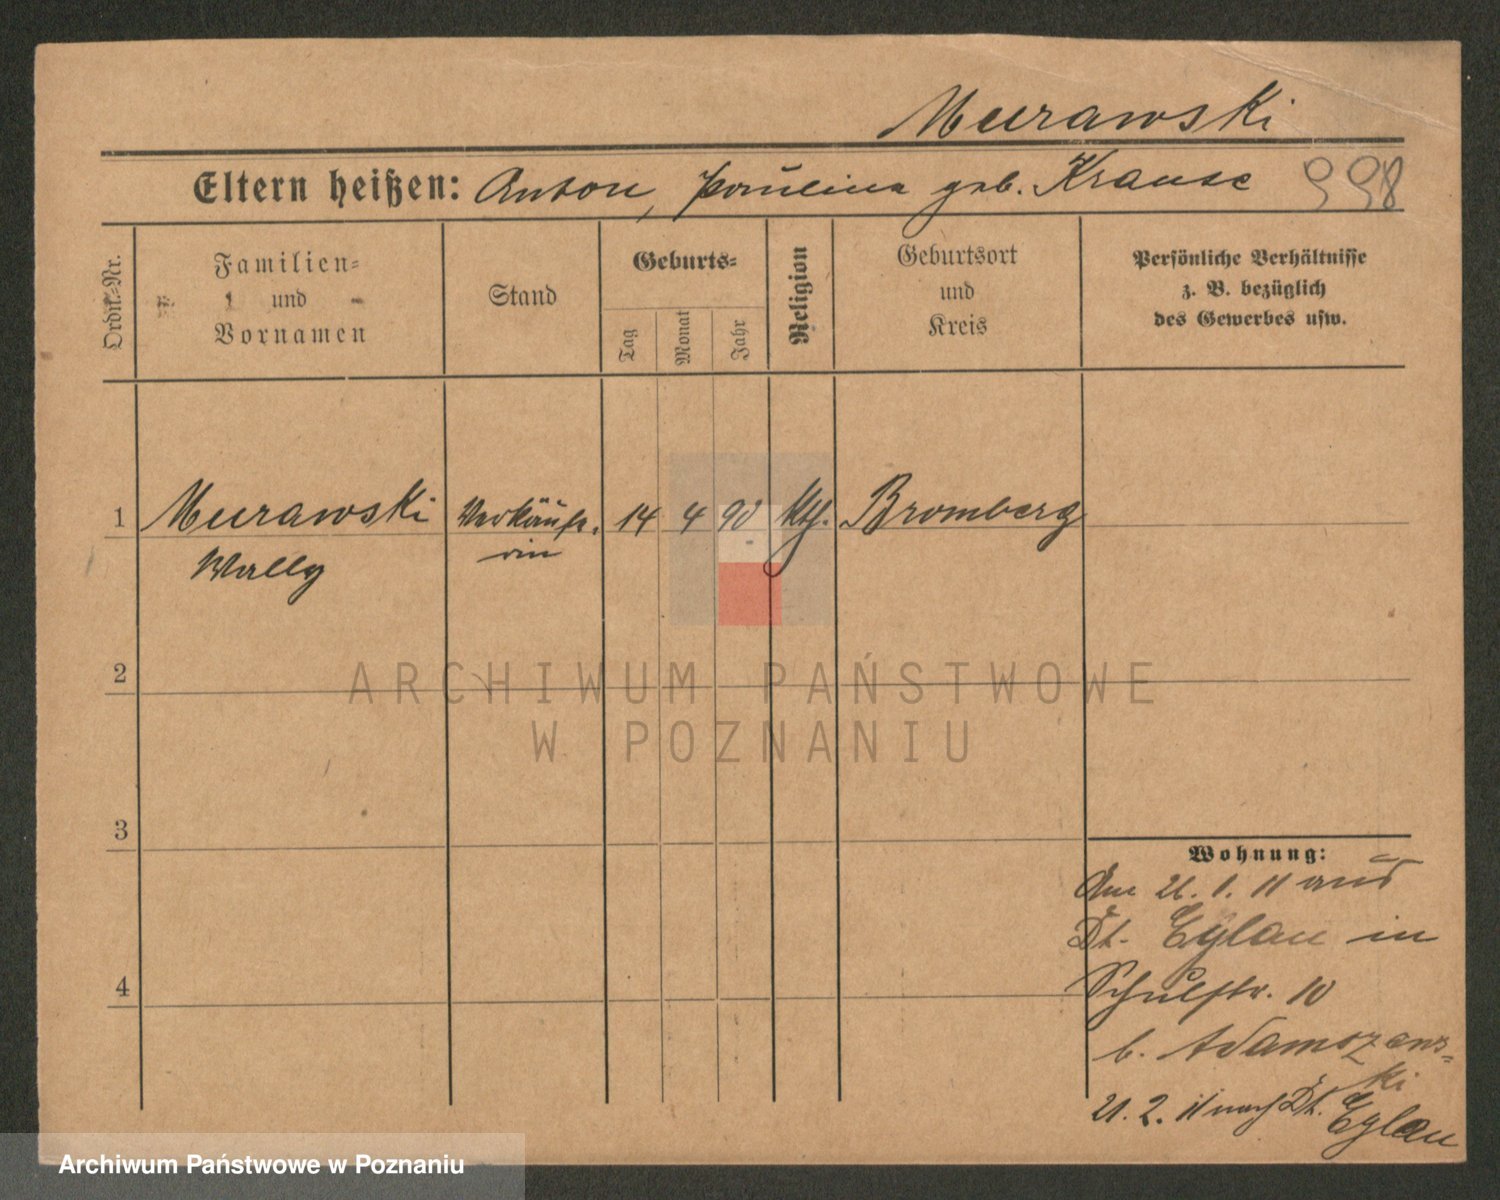 Murawski
Eltern heißen: Anton, Paulina geb. Krause 998
Ordn.-Nr.
Familien-
und
Vornamen
Stand
Geburts-
Tag
Monat
Jahr
Religion
Geburtsort
und
Kreis
Persönliche Verhältnisse
z. B. bezüglich
des Gewerbes usw.
1 Murawski Verkäufe- 14 4 90 kth. Bromberg
Wally rin
2
ARCHIWUM PAŃSTWOWE
W POZNANIU
3
Wohnung:
Am 26. 1. 11 aus
Dt. Eylau in
Schulstr. 10
4
b. Adamszews-
ki
21. 2. 11 nach Dt. Eylau
Archiwum Państwowe w Poznaniu